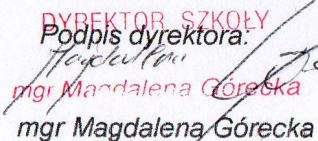 DYREKTOR SZKOŁY
Podpis dyrektora:
Magdalena
mgr Magdalena Górecka
mgr Magdalena Górecka